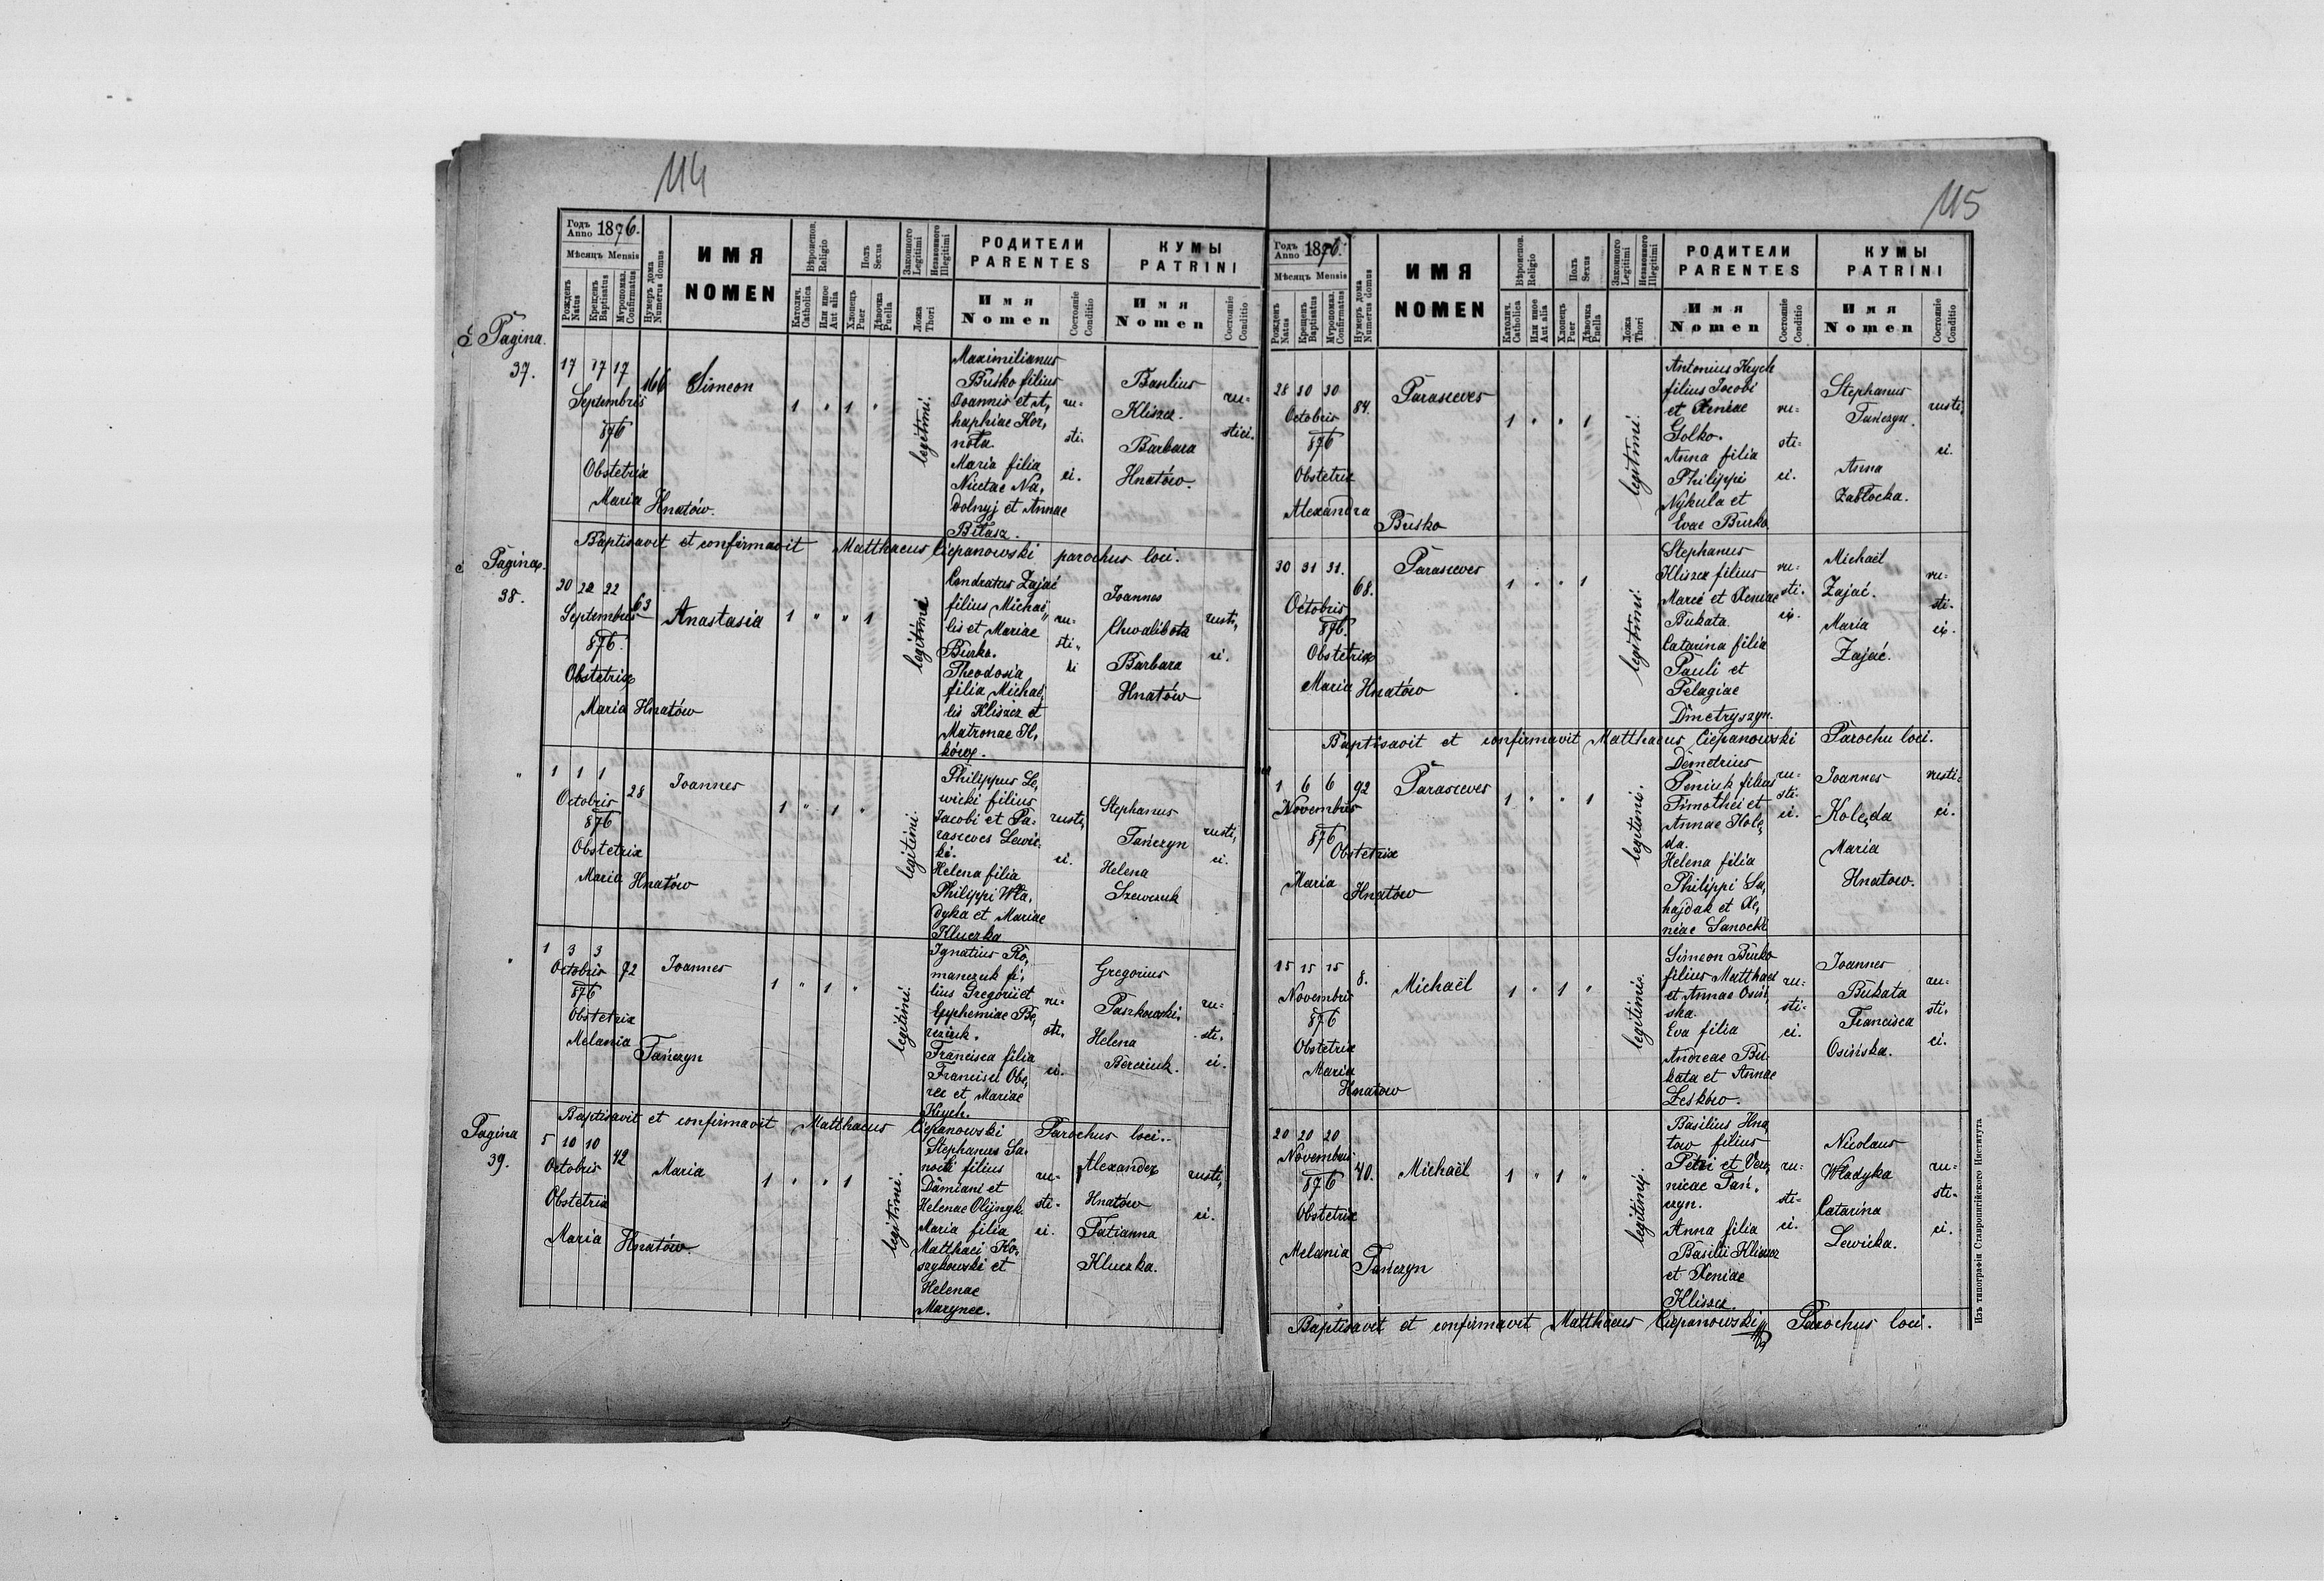 114
Годъ Anno 1876.
Мѣсяцъ Mensis
Рожденъ Natus
Крещенъ Baptisatus
Мѵропомаз. Confirmatus
Нумеръ дома Numerus domus
ИМЯ
NOMEN
Вѣроиспов. Religio
Католич. Catholica
Или иное Aut alia
Полъ Sexus
Хлопецъ Puer
Дѣвочка Puella
Законного Legitimi
Незаконного Illegitimi
Ложа Thori
РОДИТЕЛИ
PARENTES
Имя
Nomen
Состояніе Conditio
КУМЫ
PATRINI
Имя
Nomen
Состояніе Conditio
Pagina
37.
17 17 17
Septembris
876
Obstetrix
Maria Hnatów.
166
Simeon
1 " 1 "
legitimi.
Maximilianus
Buśko filius
Joannis et A,
haphiae Kor,
nota.
Maria filia
Nicetae Na,
dolnyj et Annae
Bitasz.
ru-
sti-
ci.
Basilius
Kliszcz.
Barbara
Hnatów.
ru-
stici.
Baptisavit et confirmavit Matthaeus Ciepanowski parochus loci.
Pagina
38.
20 22 22
Septembris
876.
Obstetrix
Maria Hnatów
63
Anastasia
1 " " 1
legitima
Condratus Zajać
filius Michaë,
lis et Mariae
Burko.
Theodosia
filia Michaë,
lis Kliszcz et
Matronae Il,
ków.
ru-
sti,
ci
Joannes
Chwalibota
Barbara
Hnatów
rusti,
ci.
1 1 1
Octobris
876
Obstetrix
Maria Hnatów
28
Joannes
1 " 1 "
legitimi.
Philippus Le,
wicki filius
Jacobi et Pa,
rasceves Lewic,
ki.
Helena filia
Philippi Wła,
dyka et Mariae
Kluczka
rusti,
ci.
Stephanus
Tańczyn
Helena
Szewczuk
rusti,
ci.
1 3 3
Octobris
876
Obstetrix
Melania Tańczyn
72
Joannes
1 " 1 "
legitimi.
Ignatius Ro,
manczuk fi,
lius Gregorii et
Eyphemiae Be,
reziuk.
Francisca filia
Francisci Obe,
rec et Mariae
Krych.
ru-
sti,
ci.
Gregorius
Paszkowski
Helena
Bereziuk.
ru-
sti,
ci.
Baptisavit et confirmavit Matthaeus Ciepanowski Parochus loci.
Pagina
39.
5 10 10
Octobris
Obstetrix
Maria Hnatów.
42
Maria
1 " " 1
legitimi.
Stephanus Sa,
nocki filius
Damiani et
Helenae Olijnyk.
Maria filia
Matthaei Ko,
szykowski et
Helenae
Marynec.
ru-
sti-
ci.
Alexander
Hnatów
Tatianna
Kluczka.
rusti,
ci.
115
Годъ Anno 1876.
Мѣсяцъ Mensis
Рожденъ Natus
Крещенъ Baptisatus
Мѵропомаз. Confirmatus
Нумеръ дома Numerus domus
ИМЯ
NOMEN
Вѣроиспов. Religio
Католич. Catholica
Или иное Aut alia
Полъ Sexus
Хлопецъ Puer
Дѣвочка Puella
Законного Legitimi
Незаконного Illegitimi
Ложа Thori
РОДИТЕЛИ
PARENTES
Имя
Nomen
Состояніе Conditio
КУМЫ
PATRINI
Имя
Nomen
Состояніе Conditio
28 30 30
Octobris
876
Obstetrix
Alexandra Buśko
84.
Parasceves
1 " " 1
legitimi.
Antonius Krych
filius Jacobi
et Xeniae
Golko.
Anna filia
Philippi
Nykula et
Evae Burko
ru-
sti-
ci.
Stephanus
Tańczyn.
Anna
Zabłocka.
rusti,
ci.
30 31 31.
Octobris
876.
Obstetrix
Maria Hnatów
68.
Parasceves
1 " " 1
legitimi.
Stephanus
Kliszcz filius
Marci et Xeniae
Bukata.
Catarina filia
Pauli et
Pelagiae
Dmetryszyn.
ru-
sti-
ci.
Michaël
Zajać.
Maria
Zajać.
ru-
sti-
ci.
Baptisavit et confirmavit Matthaeus Ciepanowski Parochu loci.
1 6 6
Novembris
876
Obstetrix
Maria Hnatów
92
Parasceves
1 " " 1
legitimi.
Demetrius
Peniuk filius
Timothei et
Annae Kole,
da.
Helena filia
Philippi Sa,
hajdak et Xe,
niae Sanocki
ru-
sti-
ci.
Joannes
Kolęda
Maria
Hnatow.
rusti-
ci.
15 15 15
Novembris
876
Obstetrix
Maria
Hnatow
8.
Michaël
1 " 1 "
legitimi.
Simeon Burko
filius Matthaei
et Annae Osiń,
ska.
Eva filia
Andreae Bu,
kata et Annae
Leskow.
ru-
sti-
ci.
Joannes
Bukata
Francisca
Osińska.
ru-
sti,
ci.
20 20 20
Novembris
876
Obstetrix
Melania Tańczyn
40.
Michaël
1 " 1 "
legitimi.
Basilius Hna,
tow filius
Petri et Vero,
nicae Tań,
czyn.
Anna filia
Basilii Kliszcz
et Xeniae
Kliszcz.
ru-
sti-
ci.
Nicolaus
Władyka
Catarina
Lewicka.
ru-
sti-
ci.
Baptisavit et confirmavit Matthaeus Ciepanowski Parochus loci.
Изъ типографіи Ставропигійского Института